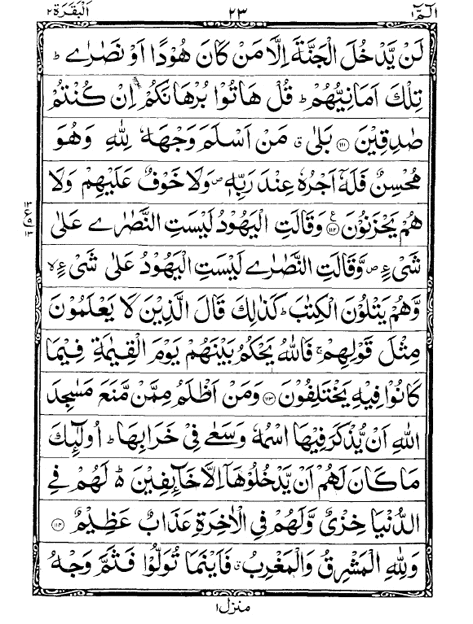 الٓمّٓ ٢٣ اَلْبَقَرَة ٢
لَنْ يَّدْخُلَ الْجَنَّةَ اِلَّا مَنْ كَانَ هُوْدًا اَوْ نَصٰرٰے ؕ
تِلْكَ اَمَانِيُّهُمْ ؕ قُلْ هَاتُوْا بُرْهَانَكُمْ اِنْ كُنْتُمْ
صٰدِقِيْنَ ﴿۱۱۱﴾ بَلٰى ۗ مَنْ اَسْلَمَ وَجْهَهٗ لِلّٰهِ وَهُوَ
مُحْسِنٌ فَلَهٗۤ اَجْرُهٗ عِنْدَ رَبِّهٖ ۪ وَلَا خَوْفٌ عَلَيْهِمْ وَلَا
هُمْ يَحْزَنُوْنَ ﴿۱۱۲﴾ وَقَالَتِ الْيَهُوْدُ لَيْسَتِ النَّصٰرٰے عَلٰى
شَىْءٍ ۪ وَّقَالَتِ النَّصٰرٰے لَيْسَتِ الْيَهُوْدُ عَلٰى شَىْءٍ ۙ
وَّهُمْ يَتْلُوْنَ الْكِتٰبَ ؕ كَذٰلِكَ قَالَ الَّذِيْنَ لَا يَعْلَمُوْنَ
مِثْلَ قَوْلِهِمْ ۚ فَاللّٰهُ يَحْكُمُ بَيْنَهُمْ يَوْمَ الْقِيٰمَةِ فِيْمَا
كَانُوْا فِيْهِ يَخْتَلِفُوْنَ ﴿۱۱۳﴾ وَمَنْ اَظْلَمُ مِمَّنْ مَّنَعَ مَسٰجِدَ
اللّٰهِ اَنْ يُّذْكَرَ فِيْهَا اسْمُهٗ وَسَعٰى فِيْ خَرَابِهَا ؕ اُولٰٓئِكَ
مَا كَانَ لَهُمْ اَنْ يَّدْخُلُوْهَاۤ اِلَّا خَآئِفِيْنَ ؕ لَهُمْ فِى
الدُّنْيَا خِزْىٌ وَّلَهُمْ فِى الْاٰخِرَةِ عَذَابٌ عَظِيْمٌ ﴿۱۱۴﴾
وَلِلّٰهِ الْمَشْرِقُ وَالْمَغْرِبُ ۗ فَاَيْنَمَا تُوَلُّوْا فَثَمَّ وَجْهُ
منزل ١